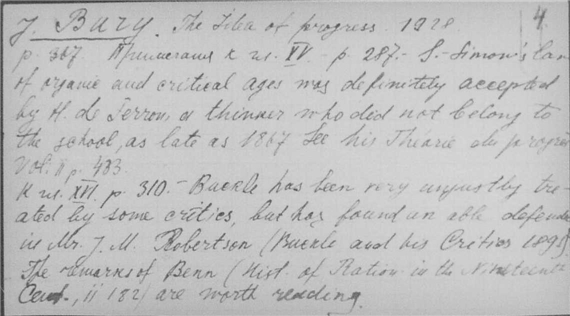 J. Bury. The Idea of progress. 1920 4.
p. 367 Примечания к гл. XV. - p. 287.- S.-Simon's law
of organic and critical ages was definitely accepted
by H. de Ferron, a thinker who did not belong to
the school, as late as 1867 See his Théorie du progrès
Vol. II p. 433.
К гл. XVI. p. 310.- Buckle has been very unjustly tre-
ated by some critics, but has found an able defender
in Mr. J. M. Robertson (Buckle and his Critics 1895).
The remarks of Benn (Hist. of Ration. in the Nineteenth
Cent., ii 182) are worth reading.